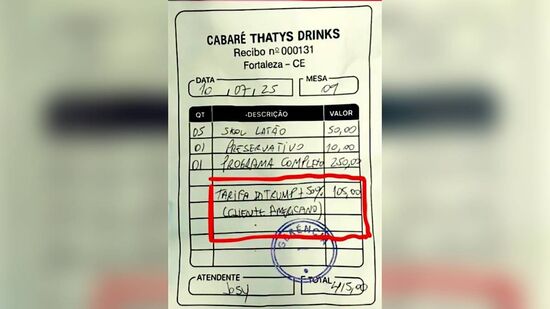 CABARÉ THATYS DRINKS
Recibo nº 000131
Fortaleza - CE
DATA
10, 07, 25
MESA
09
QT DESCRIÇÃO VALOR
05 SKOL LATÃO 50,00
01 PRESERVATIVO 10,00
01 PROGRAMA COMPLETO 250,00
TARIFA DO TRUMP + 50% 105,00
(CLIENTE AMERICANO)
GERENCIA
ATENDENTE
TOTAL
415,00